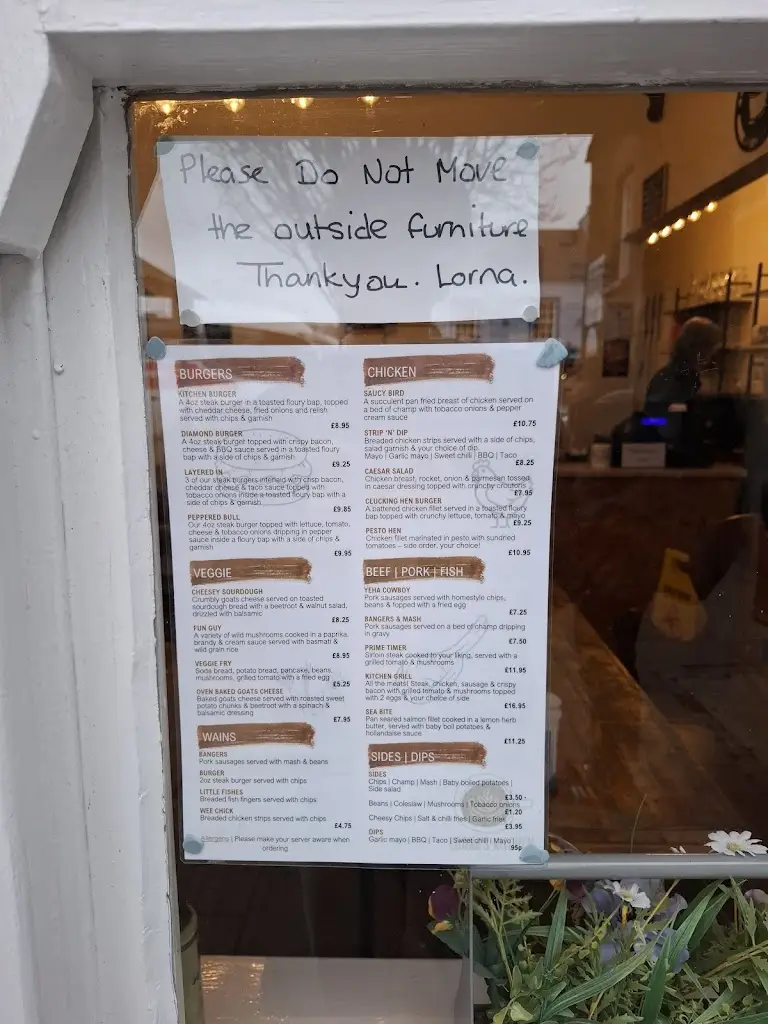 Please Do Not Move
the outside furniture
Thankyou. Lorna.
BURGERS
KITCHEN BURGER
A 4oz steak burger in a toasted floury bap, topped
with cheddar cheese, fried onions and relish
served with chips & garnish
£8.95
DIAMOND BURGER
A 4oz steak burger topped with crispy bacon,
cheese & BBQ sauce served in a toasted floury
bap with a side of chips & garnish
£9.25
LAYERED IN
3 of our steak burgers interled with crisp bacon,
cheddar cheese & taco sauce topped with
tobacco onions inside a toasted floury bap with a
side of chips & garnish
£9.85
PEPPERED BULL
Our 4oz steak burger topped with lettuce, tomato,
cheese & tobacco onions dripping in pepper
sauce inside a floury bap with a side of chips &
garnish
£9.95
VEGGIE
CHEESEY SOURDOUGH
Crumbly goats cheese served on toasted
sourdough bread with a beetroot & walnut salad,
drizzled with balsamic
£8.25
FUN GUY
A variety of wild mushrooms cooked in a paprika,
brandy & cream sauce served with basmati &
wild grain rice
£8.95
VEGGIE FRY
Soda bread, potato bread, pancake, beans,
mushrooms, grilled tomato with a fried egg
£5.25
OVEN BAKED GOATS CHEESE
Baked goats cheese served with roasted sweet
potato chunks & beetroot with a spinach &
balsamic dressing
£7.95
WAINS
BANGERS
Pork sausages served with mash & beans
BURGER
2oz steak burger served with chips
LITTLE FISHES
Breaded fish fingers served with chips
WEE CHICK
Breaded chicken strips served with chips
£4.75
Allergens | Please make your server aware when
ordering
CHICKEN
SAUCY BIRD
A succulent pan fried breast of chicken served on
a bed of champ with tobacco onions & pepper
cream sauce
£10.75
STRIP 'N' DIP
Breaded chicken strips served with a side of chips,
salad garnish & your choice of dip.
Mayo | Garlic mayo | Sweet chilli | BBQ | Taco
£8.25
CAESAR SALAD
Chicken breast, rocket, onion & parmesan tossed
in caesar dressing topped with crunchy croutons
£7.95
CLUCKING HEN BURGER
A battered chicken fillet served in a toasted floury
bap topped with crunchy lettuce, tomato & mayo
£9.25
PESTO HEN
Chicken fillet marinated in pesto with sundried
tomatoes – side order, your choice!
£10.95
BEEF | PORK | FISH
YEHA COWBOY
Pork sausages served with homestyle chips,
beans & topped with a fried egg
£7.25
BANGERS & MASH
Pork sausages served on a bed of champ dripping
in gravy
£7.50
PRIME TIMER
Sirloin steak cooked to your liking, served with a
grilled tomato & mushrooms
£11.95
KITCHEN GRILL
All the meats! Steak, chicken, sausage & crispy
bacon with grilled tomato & mushrooms topped
with 2 eggs & your choice of side
£16.95
SEA BITE
Pan seared salmon fillet cooked in a lemon herb
butter, served with baby boil potatoes &
hollandaise sauce
£11.25
SIDES | DIPS
SIDES
Chips | Champ | Mash | Baby boiled potatoes |
Side salad
£3.50
Beans | Coleslaw | Mushrooms | Tobacco onions
£1.20
Cheesy Chips | Salt & chilli fries | Garlic fries
£3.95
DIPS
Garlic mayo | BBQ | Taco | Sweet chilli | Mayo |
95p